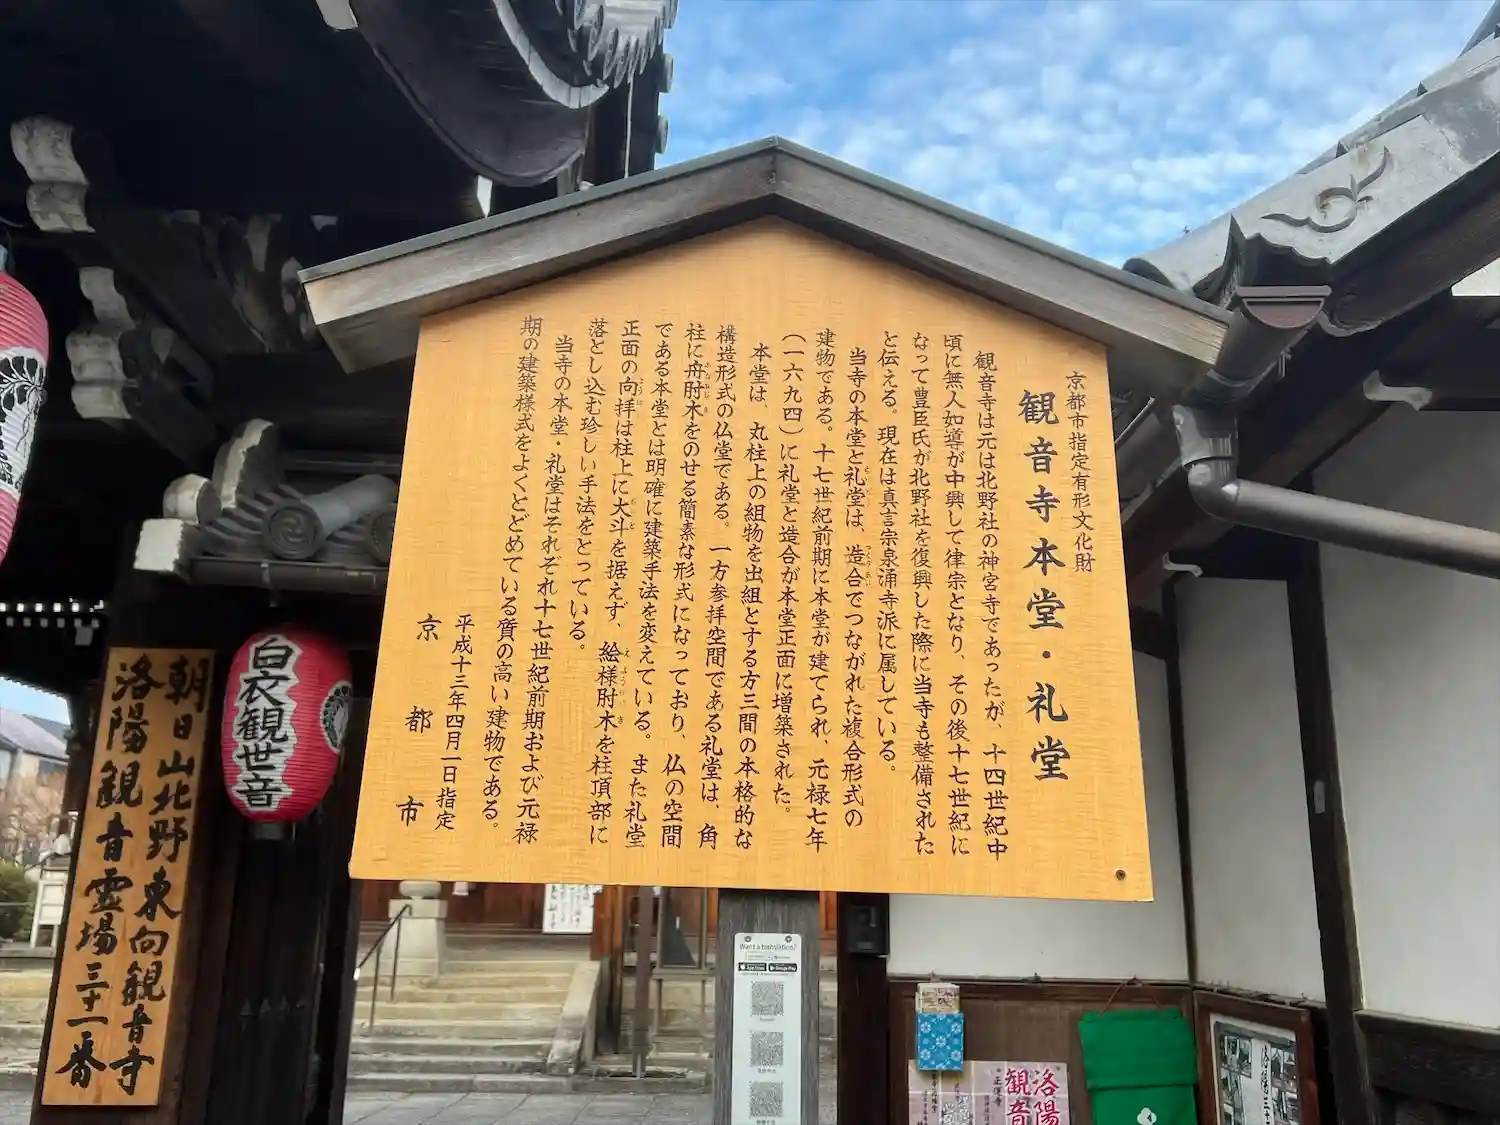 京都市指定有形文化財
観音寺本堂・礼堂
観音寺は元は北野社の神宮寺であったが、十四世紀中
頃に無人如導が中興して律宗となり、その後十七世紀に
なって豊臣氏が北野社を復興した際に当寺も整備された
と伝える。現在は真言宗泉涌寺派に属している。
当寺の本堂と礼堂は、造合でつながれた複合形式の
建物である。十七世紀前期に本堂が建てられ、元禄七年
(一六九四)に礼堂と造合が本堂正面に増築された。
本堂は、丸柱上の組物を出組とする方三間の本格的な
構造形式の仏堂である。一方参拝空間である礼堂は、角
柱に舟肘木をのせる簡素な形式になっており、仏の空間
である本堂とは明確に建築手法を変えている。また礼堂
正面の向拝は柱上に大斗を据えず、絵様肘木を柱頂部に
落とし込む珍しい手法をとっている。
当寺の本堂・礼堂はそれぞれ十七世紀前期および元禄
期の建築様式をよくとどめている質の高い建物である。
平成十三年四月一日指定
京都市
白衣観世音
朝日山北野東向観音寺
洛陽観音霊場三十一番
Want a translation?
App Store
Google Play
洛陽
観音